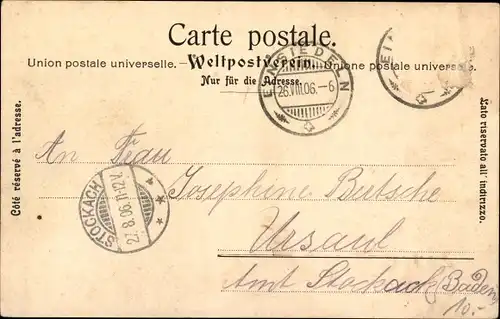 Carte postale.
Union postale universelle. — Weltpostverein. — Unione postale universale.
Nur für die Adresse.
EINSIEDELN
26.VIII.06.-6
EIN
Côté réservé à l'adresse.
Lato riservato all' indirizzo.
An Frau
Josephine Bietsche
STOCKACH
27.8.06.11-12V.
Ursaul
Amt Stockach (Baden)
10.-